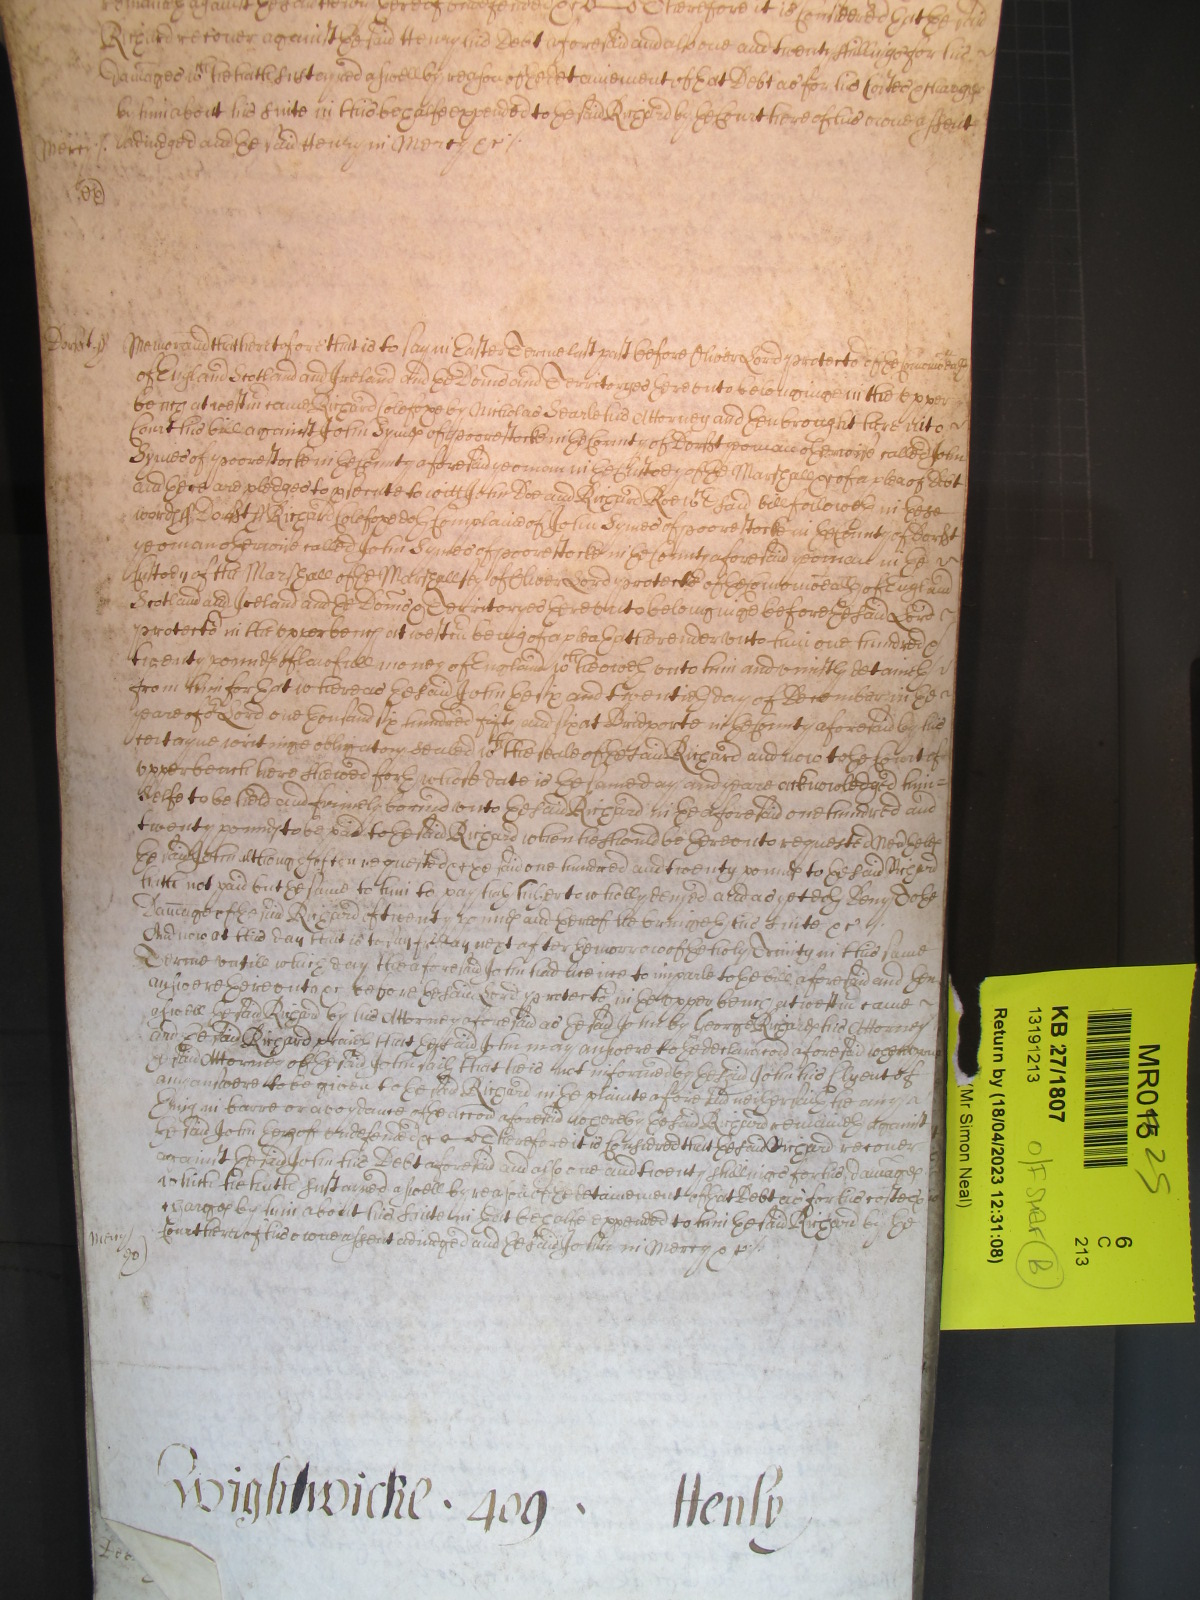 Richard recover against the said Henry his Debt aforesaid and also one and twenty shillings for his
Damages wch he hath susteyned aswell by reason of the detainement of that Debt as for his Costes & charges
by him about his suite in this behalfe expended to the said Richard by the Court here of his owne assent
Mercy adiudged and the said Henry in Mercy &c
Dorst ss Memorand that heretofore that is to say in Easter Terme last past before Oliver Lord Protector of the Comonwealth
of England Scotland and Ireland and the Domins and Territoryes thereunto belonginge in the upper
bench at westm came Richard Colesope by Nicholas Searle his Attorney and then brought here into
Court his bill against John Symes of Poorestocke in the County of Dorst yeoman otherwise called John
Symes of Poorestocke in the County aforesaid yeoman in the Custody of the Marshall &c of a plea of Debt
and there are pledges to psecute to witt John Doe and Richard Roe wch said bill followeth in these
words ss Dorst ss Richard Colesope doth Complaine of John Symes of Poorestocke in the County of Dorst
yeoman otherwise called John Symes of Poorestocke in the County aforesaid yeoman in the
Custody of the Marshall of the Marshallsey of Oliver Lord Protector of the Comonwealth of England
Scotland and Ireland and the Domins & Territoryes thereunto belonginge before the said Lord
Protector in the upper bench at westm being of a plea that he render unto him one hundred &
twenty pounds of lawfull money of England wch he oweth unto him and uniustly detaineth
from him for that whereas the said John the six and twentieth day of December in the
yeare of or Lord one thousand six hundred fifty and six at Bridporte in the County aforesaid by his
certayne writinge obligatory sealed wth the seale of the said Richard and now to the Court of
upper bench here shewed forth whose date is the same day and yeare acknowledged him=
selfe to be held and firmely bound unto the said Richard in the aforesaid one hundred and
twenty pounds to be paid to the said Richard when he should be thereunto requested Neverthelesse
the said John although often requested &c the said one hundred and twenty pounds to the said Richard
hath not paid but the same to him to pay hath hitherto wholly denyed and as yet doth deny To the
Damage of the said Richard of twenty pounds and thereof he bringeth his suite &c
And now at this day that is to say friday next after the morrow of the holy Trinity in this same
Terme untill which day the aforesaid John had licence to imparle to the bill aforesaid and then
answere thereunto &c before the said Lord Protector in the upper bench at westm came
aswell the said Richard by his Attorney aforesaid as the said John by George Richards his Attorney
and the said Richard prayeth that the said John may answere to the declaracon aforesaid whereupon
the said Attorney of the said John saith that he is not informed by the said John his Clyent of
any answere to be given to the said Richard in the plainte aforesaid neither saith he any
thing in barre or avoydance of the accon aforesaid whereby the said Richard remaineth against
the said John thereof undefended &c Therefore it is Considered that the said Richard recover
against the said John his Debt aforesaid and also one and twenty shillings for his Damages
which he hath susteyned aswell by reason of the detainement of that Debt as for his costes &
charges by him about his suite in that behalfe expended to him the said Richard by the
Mercy Court here of his owne assent adiudged and the said John in Mercy &c
Wightwicke · 409 · Henly
MR016 25
6
C
213
KB 27/1807
13191213
O/F Staff (B)
Return by (18/04/2023 12:31:08)
(Mr Simon Neal)